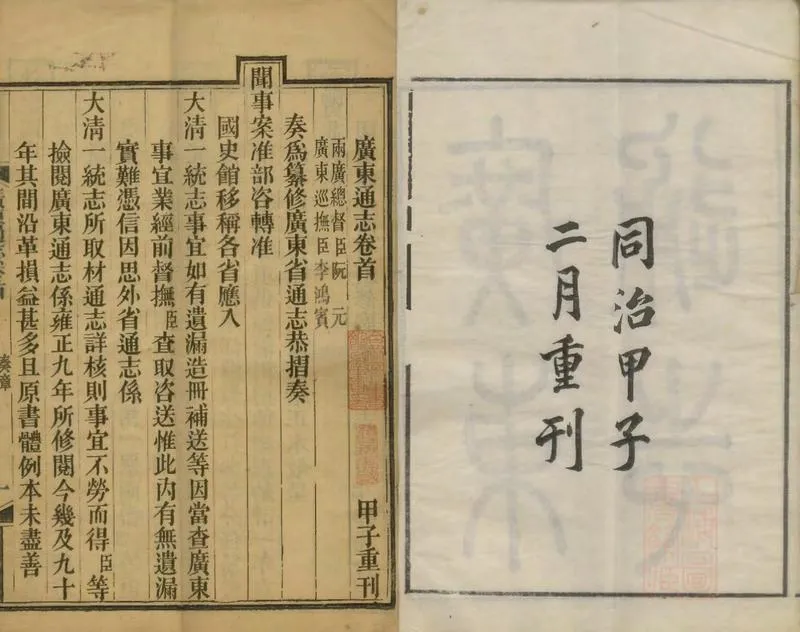 同治甲子
二月重刊
廣東通志卷首
甲子重刊
兩廣總督臣阮元
廣東巡撫臣李鴻賓
奏爲纂修廣東省通志恭摺奏
聞事案准部咨轉准
國史館移稱各省應入
大清一統志事宜如有遺漏造冊補送等因當查廣東
事宜業經前督撫臣查取咨送惟此內有無遺漏
實難憑信因思外省通志係
大清一統志所取材通志詳核則事宜不勞而得臣等
撿閱廣東通志係雍正九年所修閱今幾及九十
年其間沿革損益甚多且原書體例本未盡善
奏章
一